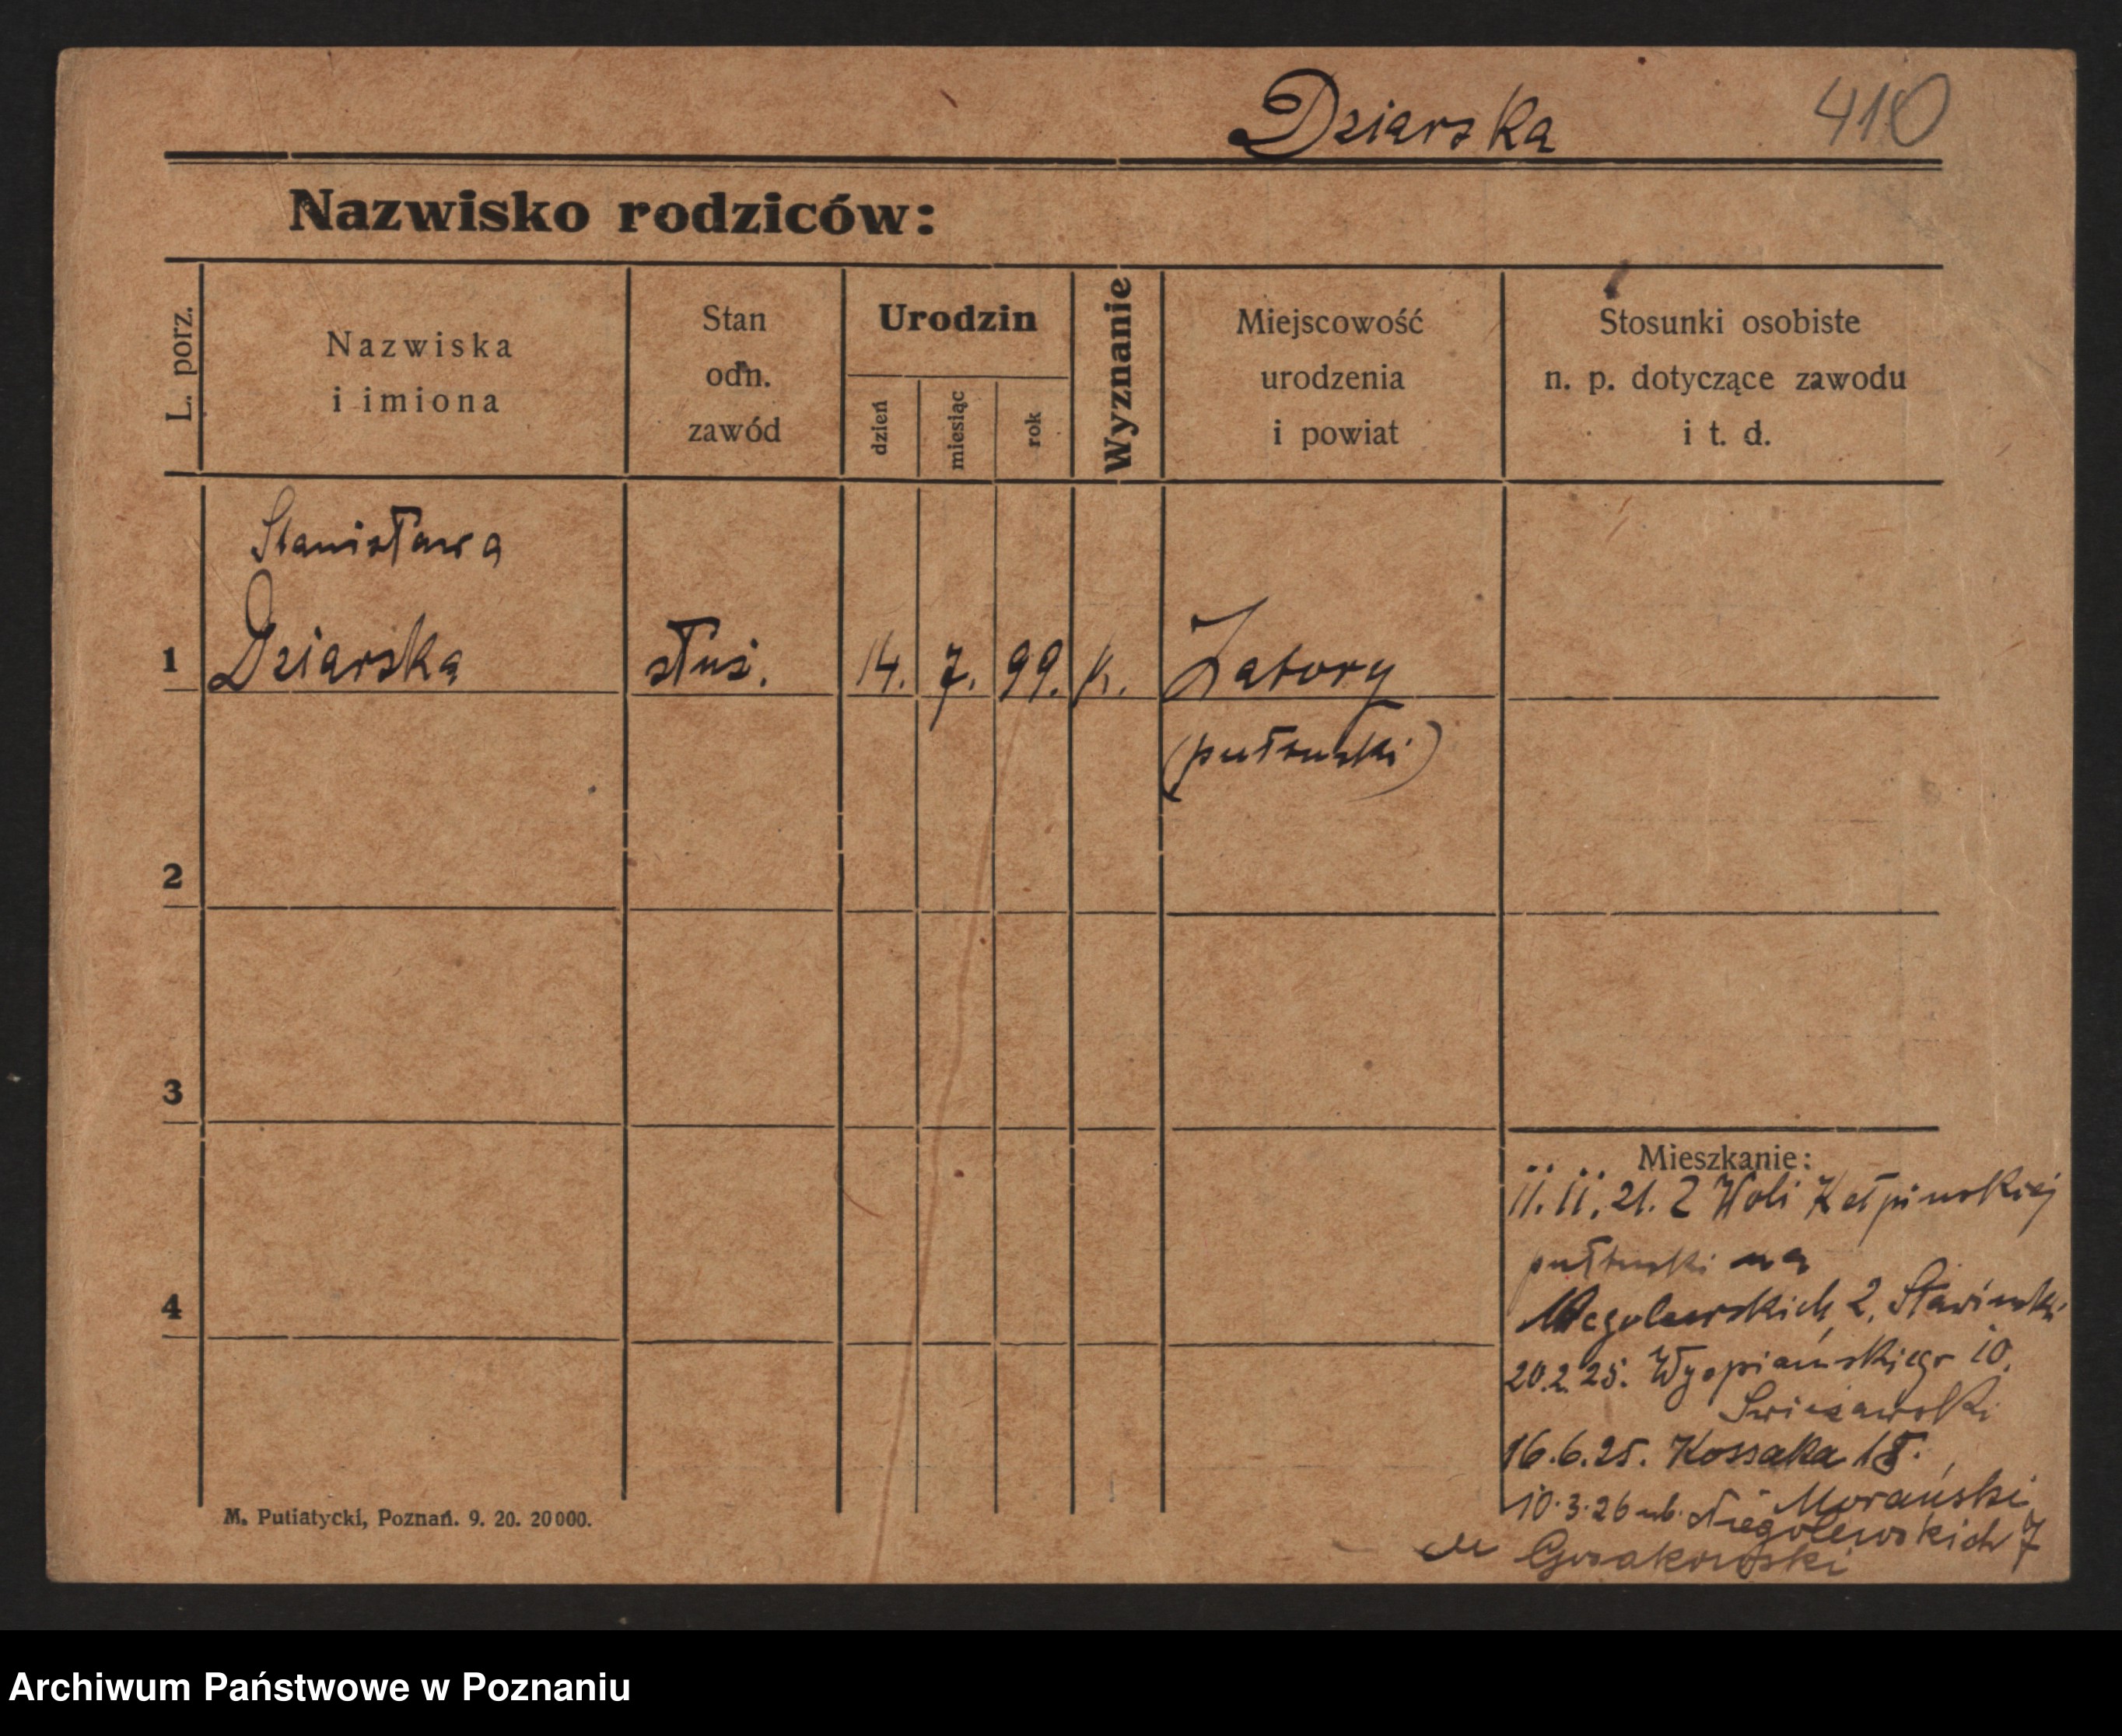 Dziarska 410
Nazwisko rodziców:
L. porz.
Nazwiska
i imiona
Stan
odn.
zawód
Urodzin
dzień
miesiąc
rok
Wyznanie
Miejscowość
urodzenia
i powiat
Stosunki osobiste
n. p. dotyczące zawodu
i t. d.
Stanisława
1 Dziarska służ. 14. 7. 99. k. Zatory
(pułtuski)
2
3
4
Mieszkanie:
11.11.21. Z Woli
pułtuski na
Niegolewskich 2.
20.2.25. Wyspiańskiego 10.
16.6.25. Kossaka
Morański
10.3.26 ul. Niegolewskich 7
M. Putiatycki, Poznań. 9. 20. 20000.
Archiwum Państwowe w Poznaniu